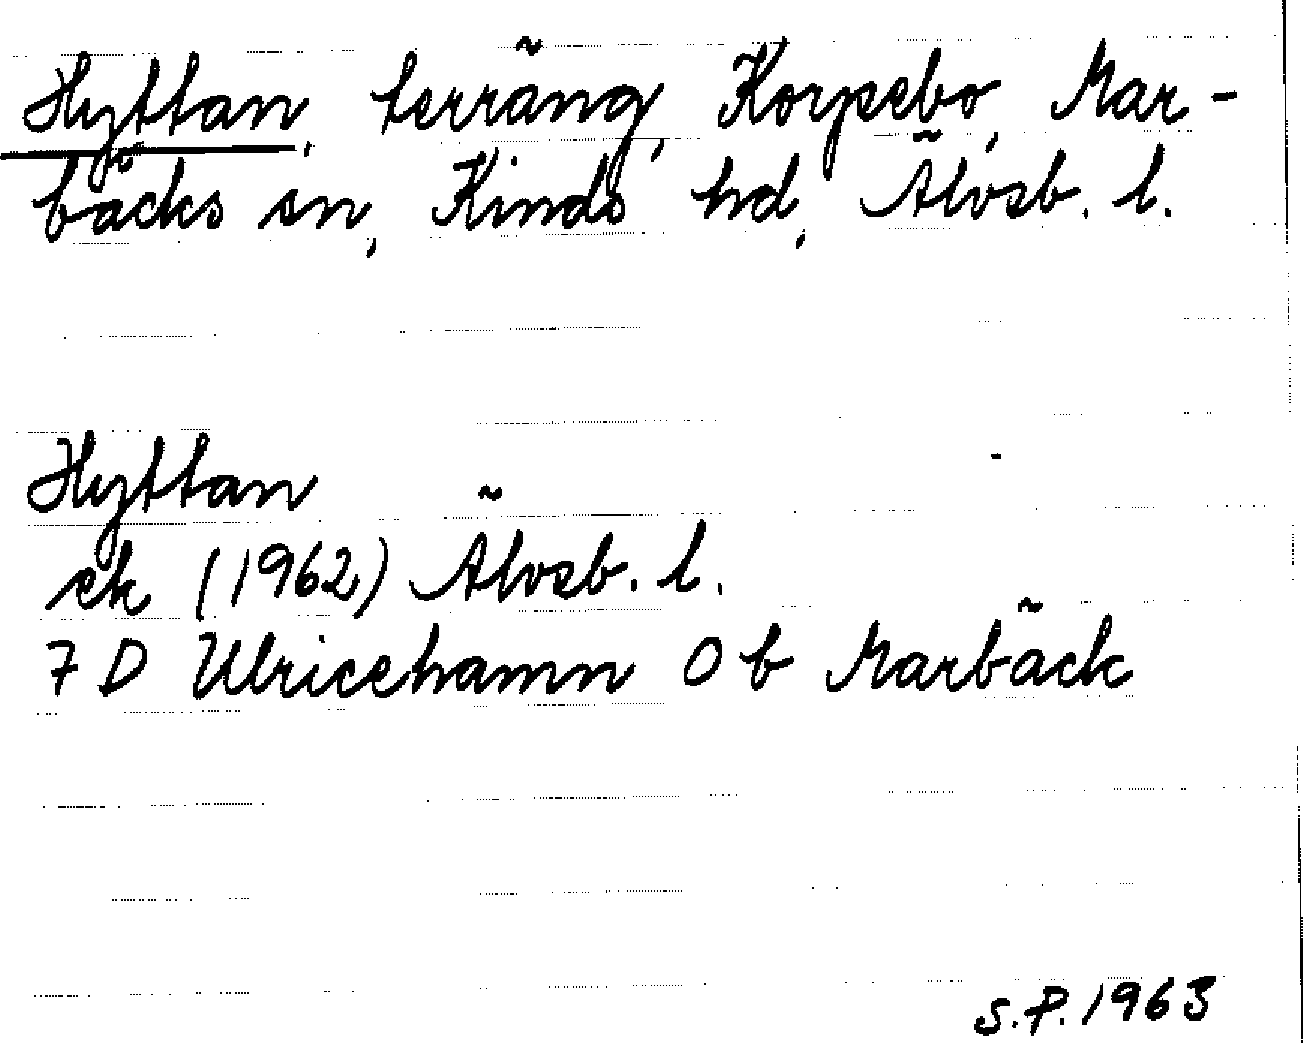 Hyttan, terräng, Korpebo, Mar-
bäcks sn, Kinds hd, Älvsb. l.
Hyttan
ek (1962) Älvsb. l.
7 D Ulricehamn 0 b Marbäck
S.P. 1963